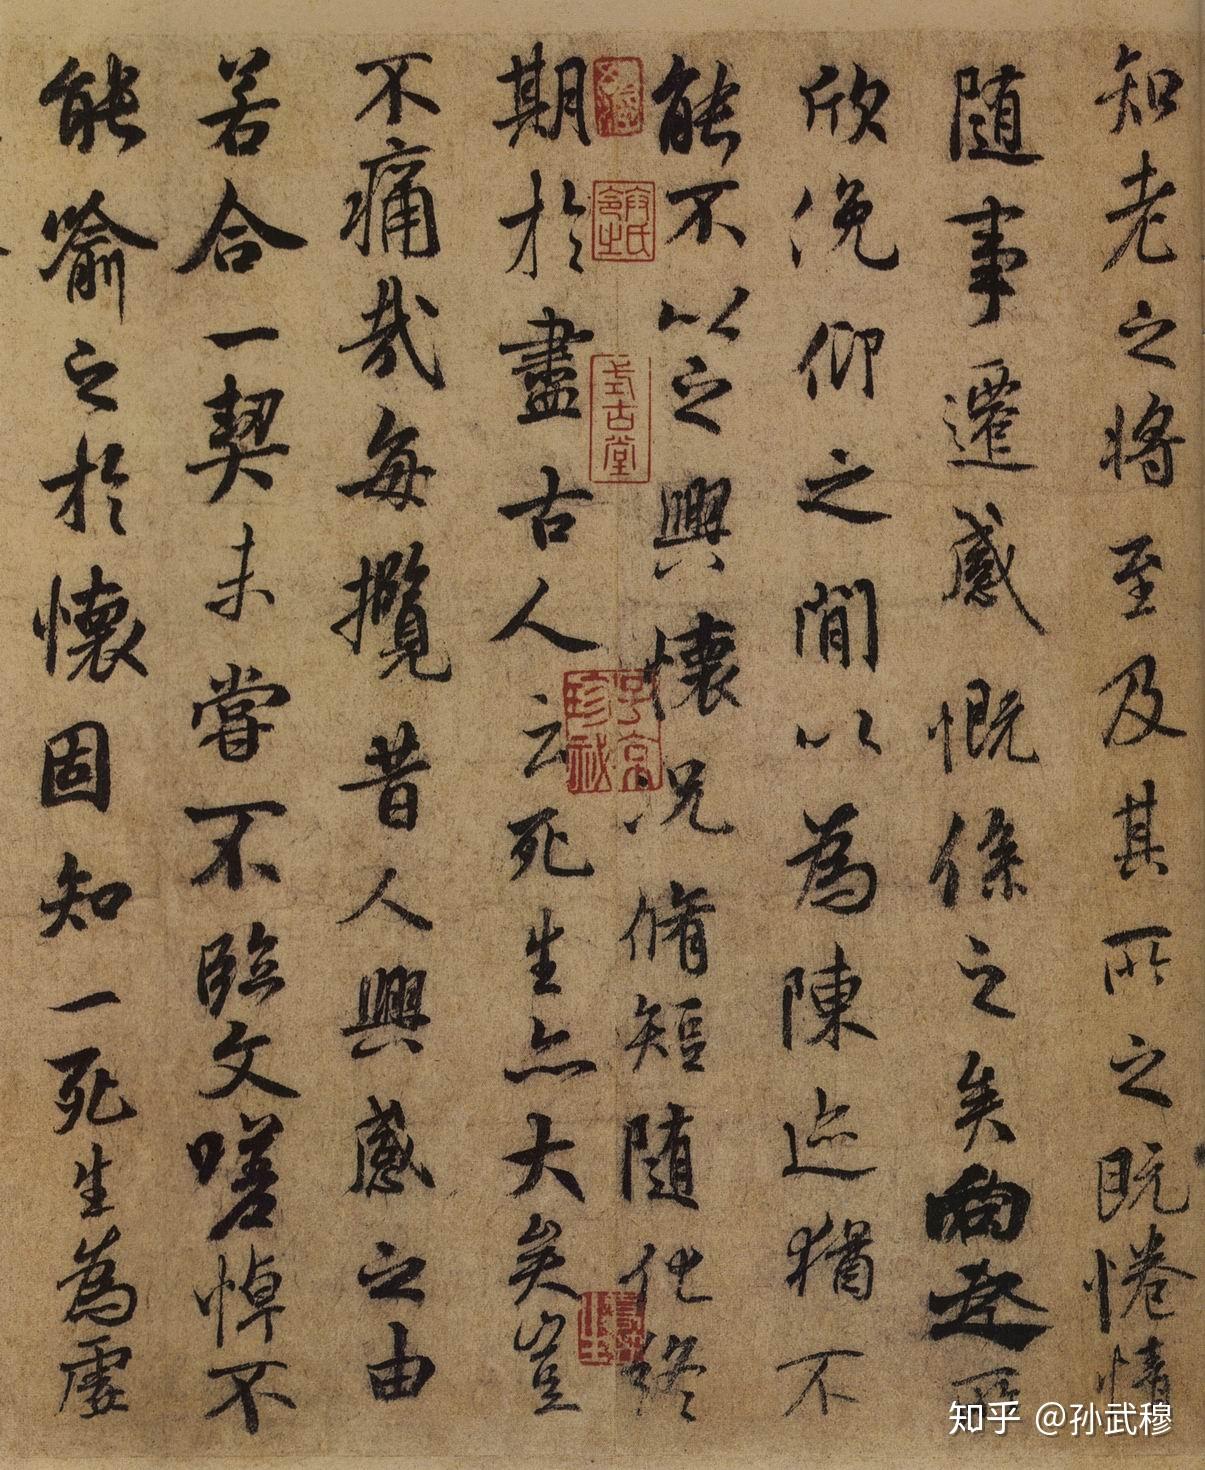 知老之将至及其所之既惓情
随事遷感慨係之矣向之所
欣俛仰之閒以為陳迹猶不
能不以之興懷況脩短随化終
期於盡古人云死生亦大矣豈
不痛哉每攬昔人興感之由
若合一契未嘗不臨文嗟悼不
能喻之於懷固知一死生為虛
式古堂
子京
珍秘
知乎 @孙武穆